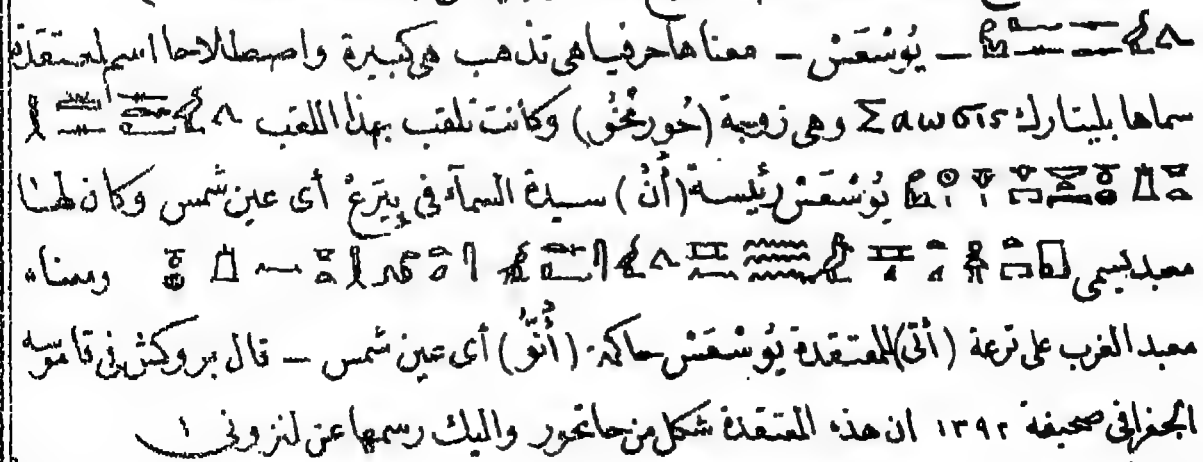 — يُوسْعَسْ — معناها حرفيا هى تذهب هى كبيرة واصطلاحا اسم لمعتقدة
سماها بليتارك Σαωσις وهى زوجة (حُورمَخُو) وكانت تلقب بهذا اللقب
يُوسْعَسْ رئيسة (أُنْ) سيدة السمآء فى بِيَرَعْ أى عين شمس وكان لها
معبد يسمى ومعناه
معبد الغرب على ترعة (أتى) للمعتقدة يُوسْعَسْ حاكمة (أُنُّو) أى عين شمس — قال بروكش فى قاموسه
الجغرافى صحيفة ١٣٩٢ ان هذه المعتقدة شكل من حاتحور واليك رسمها عن لنزونى